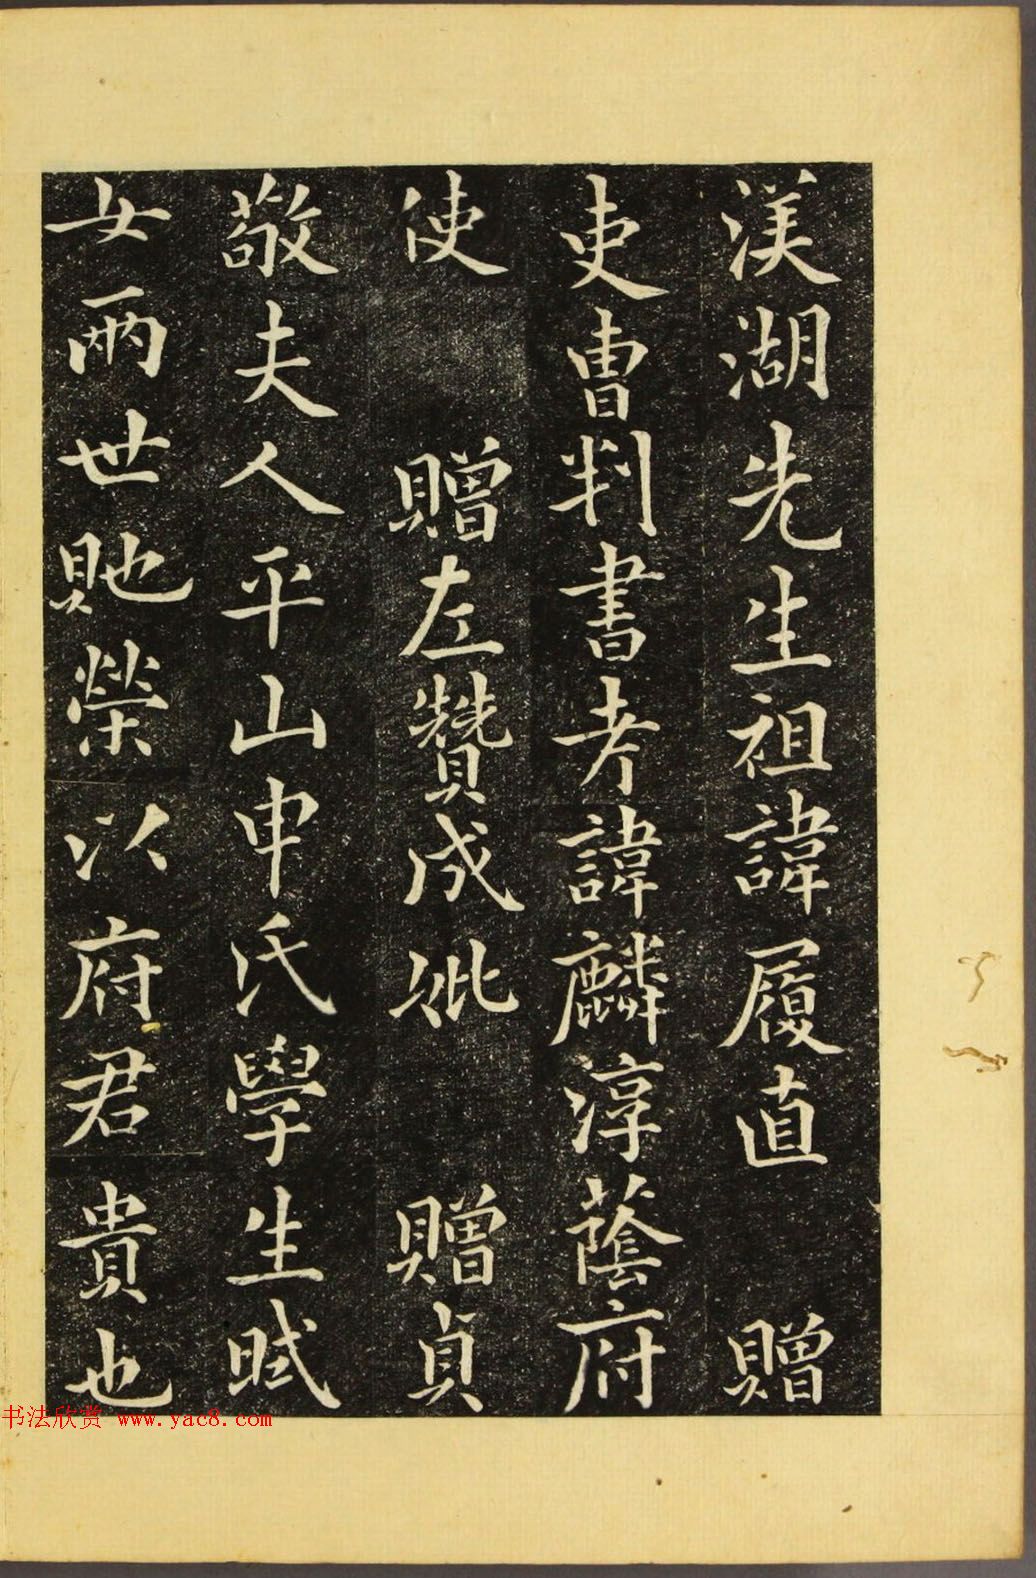 渼湖先生祖諱履直 贈
吏曹判書考諱麟淳蔭府
使 贈左贊成妣 贈貞
敬夫人平山申氏學生
女兩世貤榮以府君貴也
书法欣赏 www.yac8.com